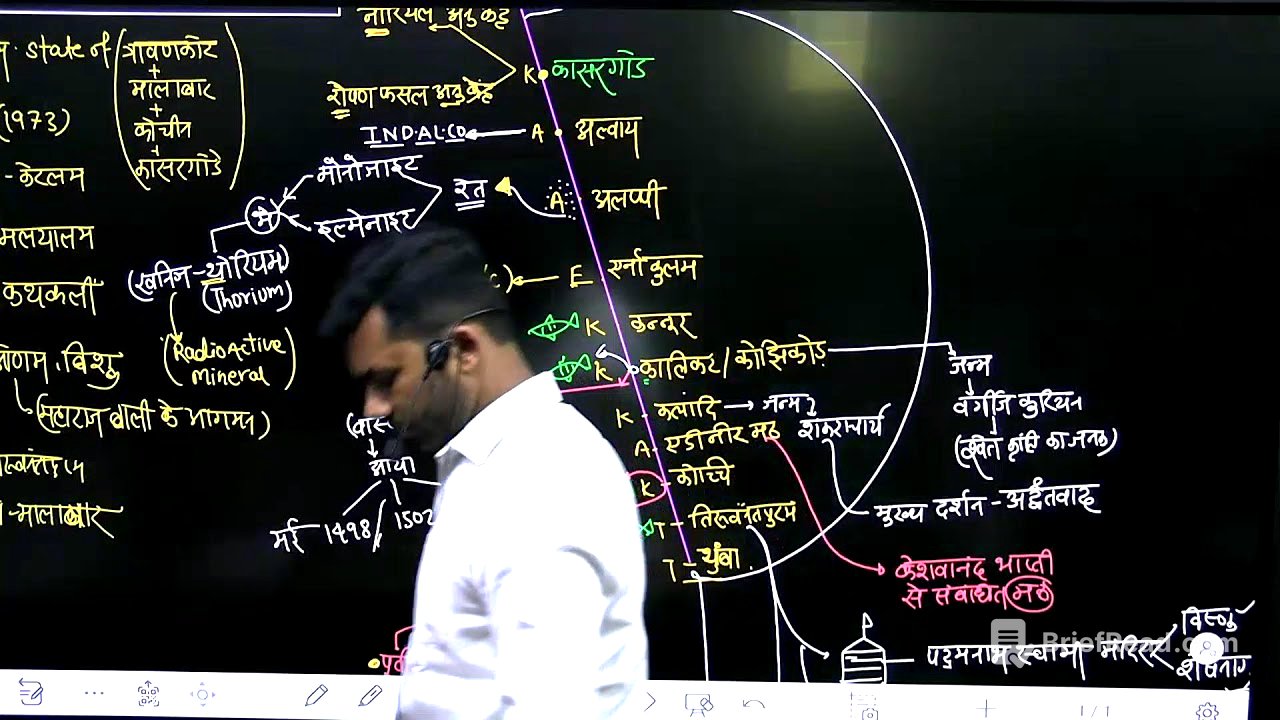 नारियल अनु॰ केंद्र
State of
त्रावणकोर
+
मालाबार
+
कोचीन
+
कासरगोड
(1973)
- केरलम
मलयालम
कथकली
विशु
रोपण फसल अनु॰ केंद्र
K कासरगोड
INDALCO A अल्वाय
मोनोजाइट
इल्मेनाइट
रेत
A अलप्पी
(खनिज - थोरियम)
(Thorium)
(RadioActive
mineral)
E एर्नाकुलम
K कन्नूर
K कालिकट / कोझिकोड
जन्म
वर्गीज कुरियन
(श्वेत क्रांति का जनक)
K - कलादि → जन्म
शंकराचार्य
A - एडनीर मठ
K - कोच्चि
मुख्य दर्शन - अद्वैतवाद
T - तिरुवनंतपुरम
T - थुंबा
केशवानंद भारती
से संबंधित मठ
आया
मई 1498 / 1502
- मालाबार
पद्मनाभ स्वामी मंदिर
विष्णु
शेषनाग
BriefRead.com
1/1